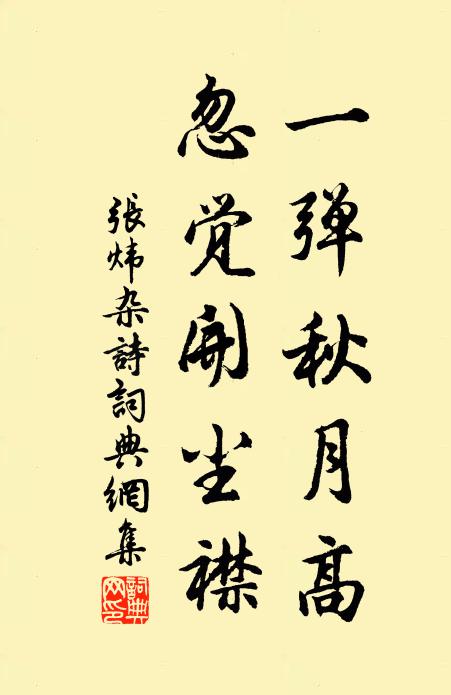 一弹秋月高
忽觉開尘襟
張炜杂詩詞典網集
詞典網印